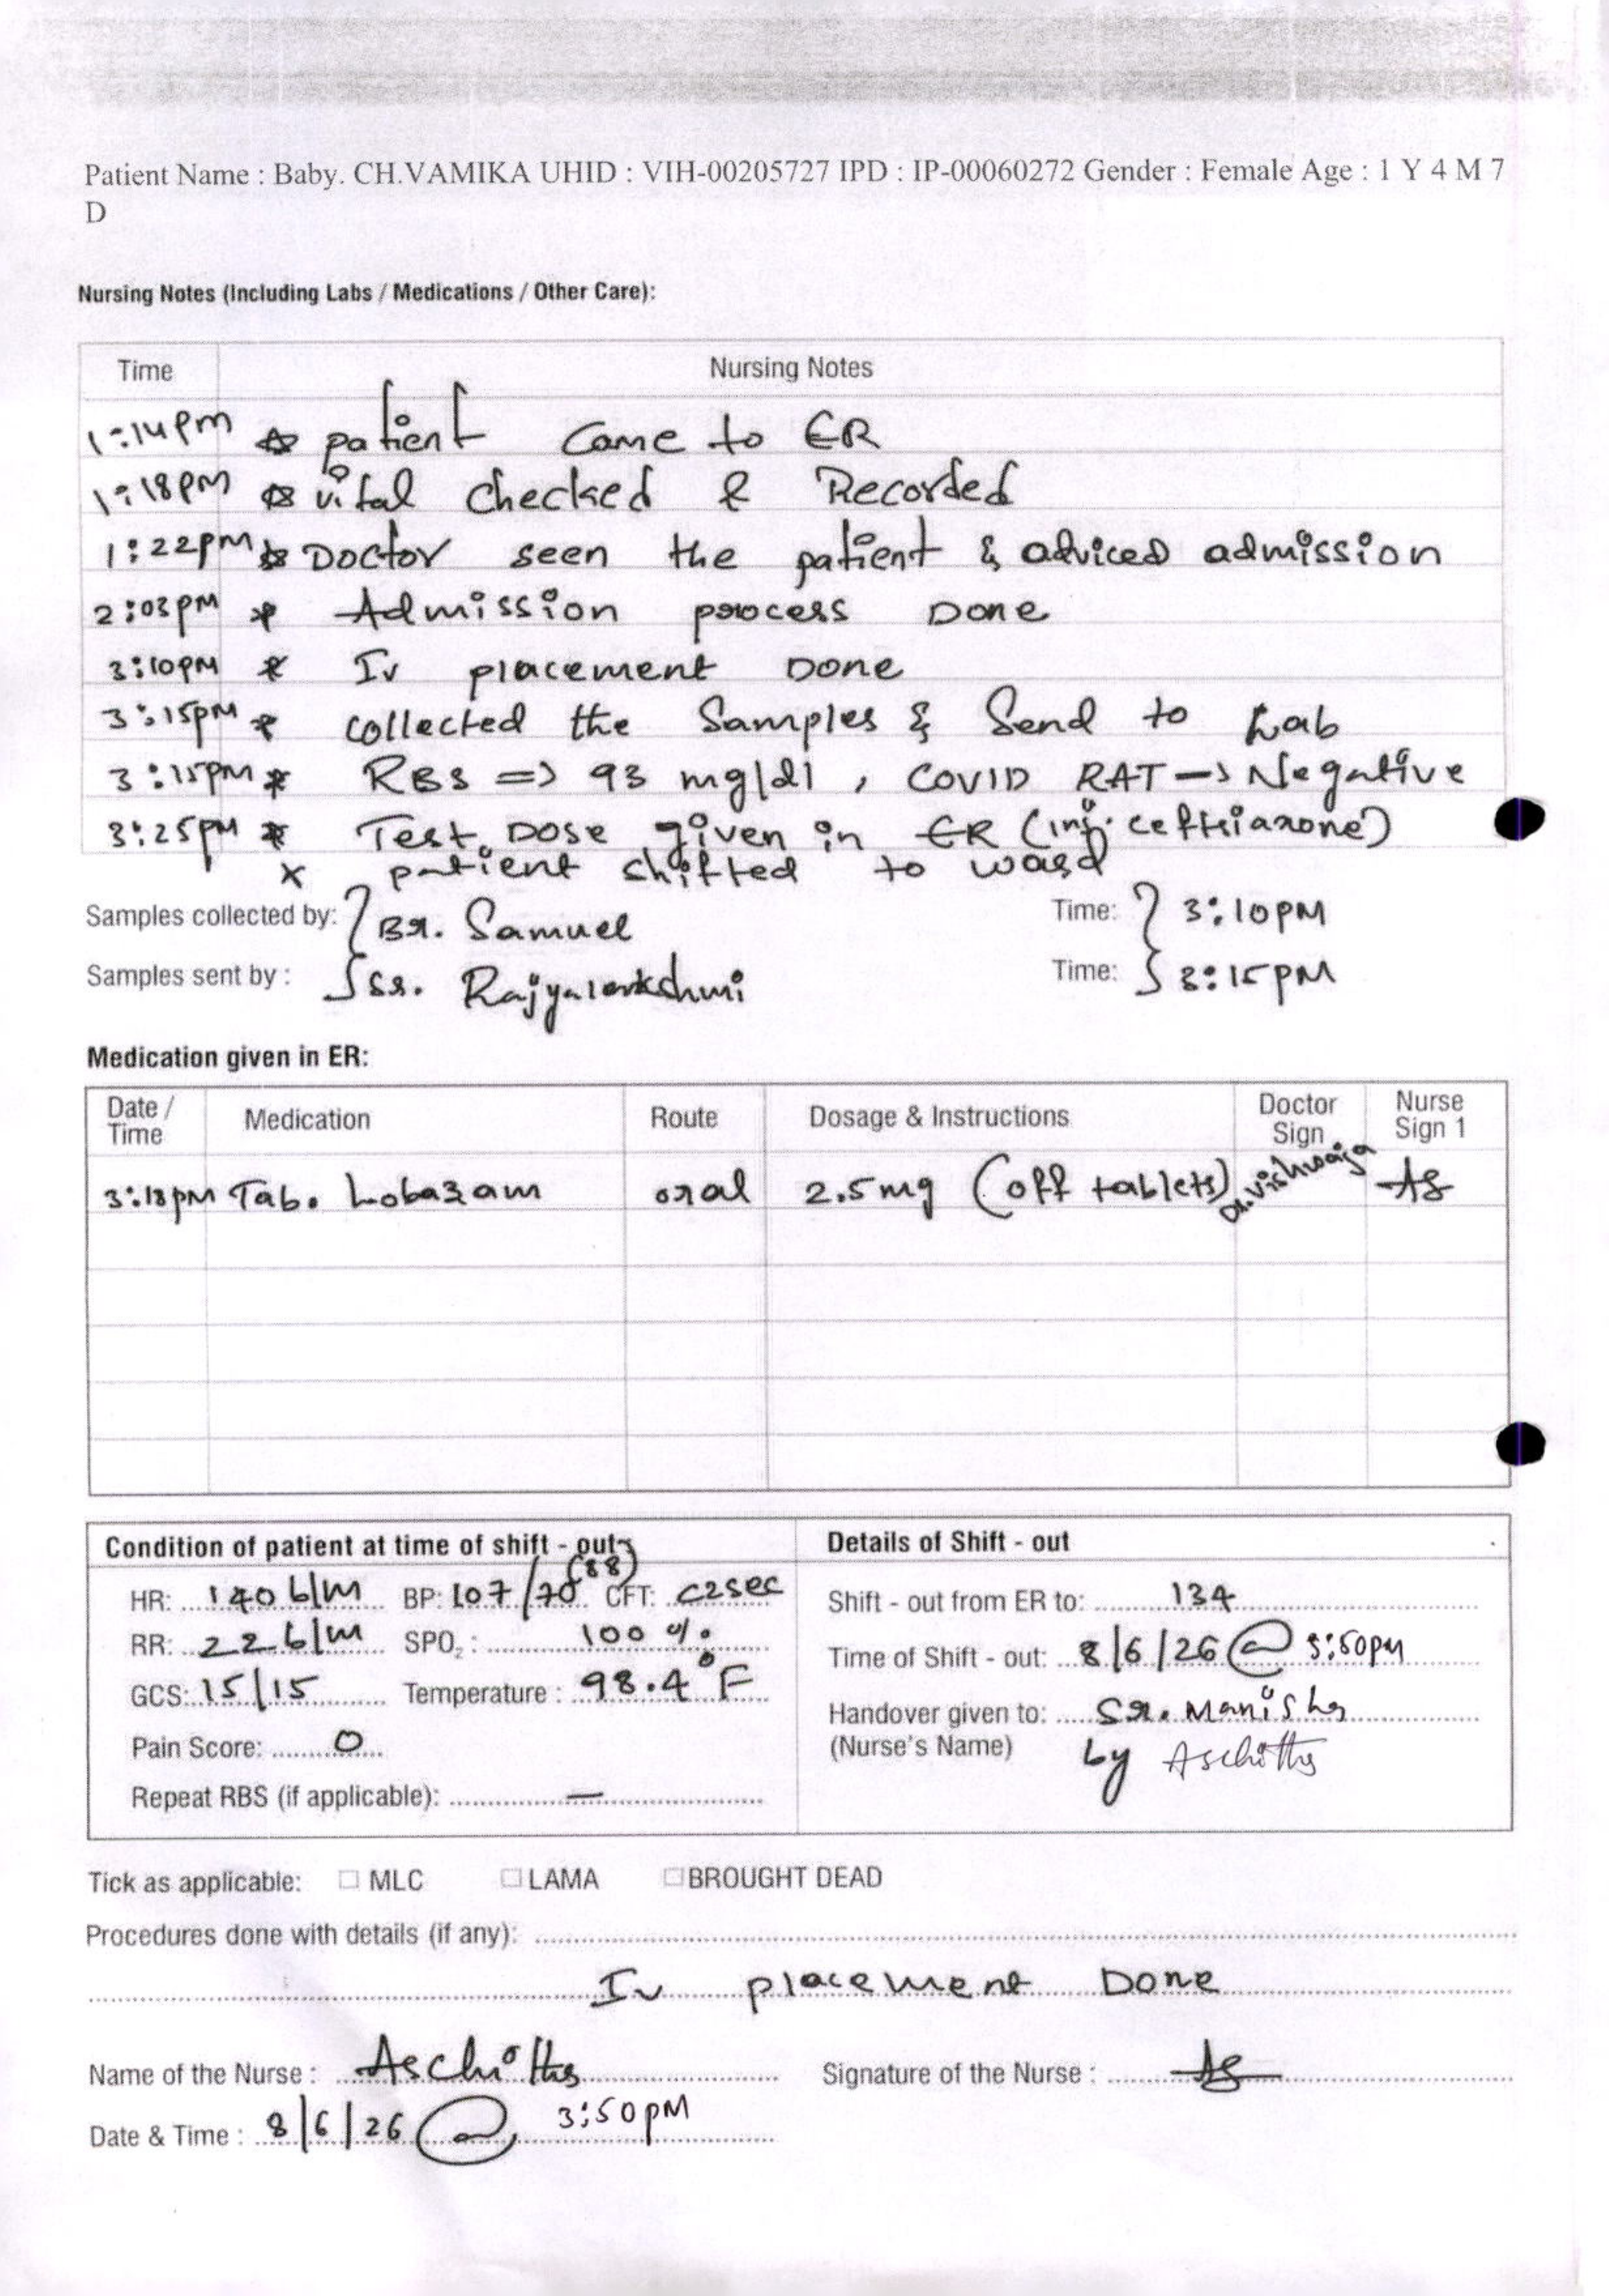 Patient Name : Baby. CH.VAMIKA UHID : VIH-00205727 IPD : IP-00060272 Gender : Female Age : 1 Y 4 M 7
D
Nursing Notes (Including Labs / Medications / Other Care):
Time Nursing Notes
1:14pm patient Came to ER
1:18PM vital checked & Recorded
1:22pm Doctor seen the patient & adviced admission
2:03PM * Admission process Done
3:10PM * Iv placement Done
3:15PM * collected the Samples & Send to Lab
3:15PM * RBS => 93 mg/dl , COVID RAT → Negative
3:25PM * Test Dose given in ER (inj. ceftriaxone)
x patient shifted to ward
Samples collected by: Br. Samuel Time: 3:10PM
Samples sent by : Sr. Time: 3:15PM
Medication given in ER:
Date / Time Medication Route Dosage & Instructions Doctor Sign Nurse Sign 1
3:18pm Tab. Lobazam oral 2.5mg (off tablets) Dr.Vishwaja As
Condition of patient at time of shift - out Details of Shift - out
HR: 140 b/m BP: 107/70 (88) CFT: <2sec Shift - out from ER to: 134
RR: 22 b/m SPO2 : 100 % Time of Shift - out: 8/6/26 @ 3:50pm
GCS: 15/15 Temperature : 98.4°F
Handover given to: Sr. Manisha
Pain Score: 0 (Nurse's Name) by
Repeat RBS (if applicable): —
Tick as applicable: □ MLC □ LAMA □ BROUGHT DEAD
Procedures done with details (if any):
Iv placement Done
Name of the Nurse : Signature of the Nurse : As
Date & Time : 8/6/26 @ 3:50PM